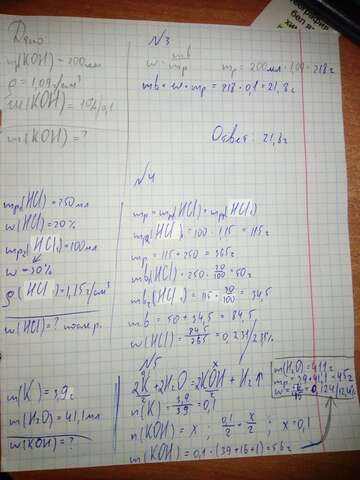 Дано
m(KOH) = 200мл
ρ = 1,09г/см³
w(KOH) = 10%/0,1
m(KOH) = ?
№3
w = mв/mр
mр = 200мл · 1,09 = 218г
mв = w · mр = 218 · 0,1 = 21,8г
Ответ: 21,8г
№4
mр₁(HCl) = 250мл
w(HCl) = 20%
mр₂(HCl) = 100мл
w = 30%
ρ(HCl) = 1,15г/см³
w(HCl) = ?
mр = mр₁(HCl) + mр₂(HCl)
mр₂(HCl) = 100 · 1,15 = 115г
mр = 115 + 250 = 365г
mв₁(HCl) = 250 · 20/100 = 50г
mв₂(HCl) = 115 · 30/100 = 34,5
mв = 50 + 34,5 = 84,5
w(HCl) = 84,5/365 = 0,231/23%
№5
m(K) = 3,9г
m(H₂O) = 41,1мл
w(KOH) = ?
2K + 2H₂O = 2KOH + H₂↑
n(K) = 3,9/39 = 0,1
n(KOH) = x ; 0,1/2 = x/2 ; x = 0,1
m(KOH) = 0,1 · (39+16+1) = 5,6г
m(H₂O) = 41,1г
mр = 3,9 + 41,1 = 45г